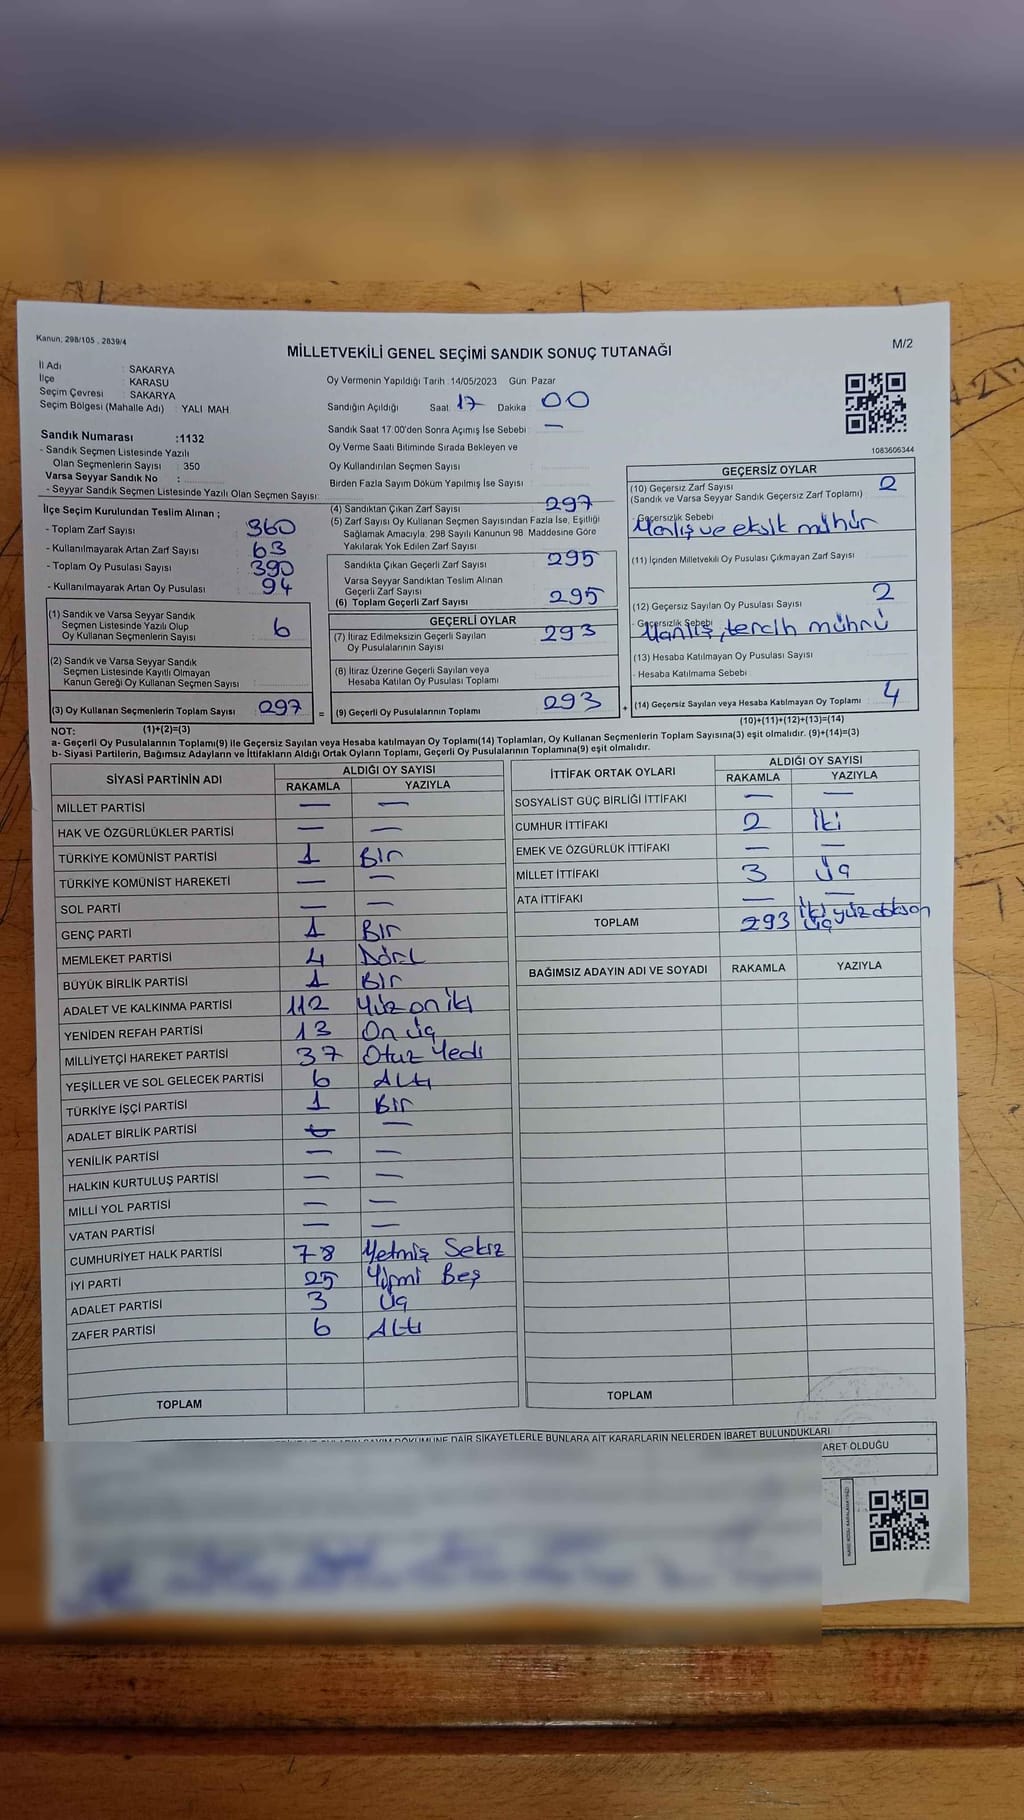 Kanun, 298/105 , 2839/4
MİLLETVEKİLİ GENEL SEÇİMİ SANDIK SONUÇ TUTANAĞI
M/2
İl Adı : SAKARYA
İlçe : KARASU
Seçim Çevresi : SAKARYA
Seçim Bölgesi (Mahalle Adı) : YALI MAH.
Oy Vermenin Yapıldığı Tarih :14/05/2023 Gün: Pazar
Sandığın Açıldığı Saat: 17 Dakika : 00
Sandık Saat 17.00'den Sonra Açımış İse Sebebi : —
Oy Verme Saati Bitiminde Sırada Bekleyen ve
Oy Kullandırılan Seçmen Sayısı :
Birden Fazla Sayım Döküm Yapılmış İse Sayısı :
1083606344
Sandık Numarası :1132
- Sandık Seçmen Listesinde Yazılı
Olan Seçmenlerin Sayısı : 350
Varsa Seyyar Sandık No :
- Seyyar Sandık Seçmen Listesinde Yazılı Olan Seçmen Sayısı:
İlçe Seçim Kurulundan Teslim Alınan ;
- Toplam Zarf Sayısı : 360
- Kullanılmayarak Artan Zarf Sayısı : 63
- Toplam Oy Pusulası Sayısı : 390
- Kullanılmayarak Artan Oy Pusulası : 94
(1) Sandık ve Varsa Seyyar Sandık
Seçmen Listesinde Yazılı Olup
Oy Kullanan Seçmenlerin Sayısı : 6
(2) Sandık ve Varsa Seyyar Sandık
Seçmen Listesinde Kayıtlı Olmayan
Kanun Gereği Oy Kullanan Seçmen Sayısı :
(3) Oy Kullanan Seçmenlerin Toplam Sayısı : 297 =
(1)+(2)=(3)
(4) Sandıktan Çıkan Zarf Sayısı : 297
(5) Zarf Sayısı Oy Kullanan Seçmen Sayısından Fazla İse, Eşitliği
Sağlamak Amacıyla, 298 Sayılı Kanunun 98. Maddesine Göre
Yakılarak Yok Edilen Zarf Sayısı :
Sandıkta Çıkan Geçerli Zarf Sayısı : 295
Varsa Seyyar Sandıktan Teslim Alınan
Geçerli Zarf Sayısı :
(6) Toplam Geçerli Zarf Sayısı : 295
GEÇERLİ OYLAR
(7) İtiraz Edilmeksizin Geçerli Sayılan
Oy Pusulalarının Sayısı : 293
(8) İtiraz Üzerine Geçerli Sayılan veya
Hesaba Katılan Oy Pusulası Toplamı :
(9) Geçerli Oy Pusulalarının Toplamı : 293 +
GEÇERSİZ OYLAR
(10) Geçersiz Zarf Sayısı : 2
(Sandık ve Varsa Seyyar Sandık Geçersiz Zarf Toplamı)
- Geçersizlik Sebebi
Yanlış ve eksik mühür
(11) İçinden Milletvekili Oy Pusulası Çıkmayan Zarf Sayısı :
(12) Geçersiz Sayılan Oy Pusulası Sayısı : 2
- Geçersizlik Sebebi
Yanlış, tercih mührü
(13) Hesaba Katılmayan Oy Pusulası Sayısı :
- Hesaba Katılmama Sebebi
(14) Geçersiz Sayılan veya Hesaba Katılmayan Oy Toplamı : 4
(10)+(11)+(12)+(13)=(14)
NOT:
a- Geçerli Oy Pusulalarının Toplamı(9) ile Geçersiz Sayılan veya Hesaba katılmayan Oy Toplamı(14) Toplamları, Oy Kullanan Seçmenlerin Toplam Sayısına(3) eşit olmalıdır. (9)+(14)=(3)
b- Siyasi Partilerin, Bağımsız Adayların ve İttifakların Aldığı Oyların Toplamı, Geçerli Oy Pusulalarının Toplamına(9) eşit olmalıdır.
SİYASİ PARTİNİN ADI ALDIĞI OY SAYISI
RAKAMLA YAZIYLA
MİLLET PARTİSİ — —
HAK VE ÖZGÜRLÜKLER PARTİSİ — —
TÜRKİYE KOMÜNİST PARTİSİ 1 Bir
TÜRKİYE KOMÜNİST HAREKETİ — —
SOL PARTİ — —
GENÇ PARTİ 1 Bir
MEMLEKET PARTİSİ 4 Dört
BÜYÜK BİRLİK PARTİSİ 1 Bir
ADALET VE KALKINMA PARTİSİ 112 Yüz on iki
YENİDEN REFAH PARTİSİ 13 On üç
MİLLİYETÇİ HAREKET PARTİSİ 37 Otuz Yedi
YEŞİLLER VE SOL GELECEK PARTİSİ 6 Altı
TÜRKİYE İŞÇİ PARTİSİ 1 Bir
ADALET BİRLİK PARTİSİ — —
YENİLİK PARTİSİ — —
HALKIN KURTULUŞ PARTİSİ — —
MİLLİ YOL PARTİSİ — —
VATAN PARTİSİ — —
CUMHURİYET HALK PARTİSİ 78 Yetmiş Sekiz
İYİ PARTİ 25 Yirmi Beş
ADALET PARTİSİ 3 Üç
ZAFER PARTİSİ 6 Altı
TOPLAM
İTTİFAK ORTAK OYLARI ALDIĞI OY SAYISI
RAKAMLA YAZIYLA
SOSYALİST GÜÇ BİRLİĞİ İTTİFAKI — —
CUMHUR İTTİFAKI 2 İki
EMEK VE ÖZGÜRLÜK İTTİFAKI — —
MİLLET İTTİFAKI 3 Üç
ATA İTTİFAKI — —
TOPLAM 293 İki yüz doksan üç
BAĞIMSIZ ADAYIN ADI VE SOYADI RAKAMLA YAZIYLA
TOPLAM
SAYIM DÖKÜMÜNE DAİR ŞİKAYETLERLE BUNLARA AİT KARARLARIN NELERDEN İBARET BULUNDUKLARI